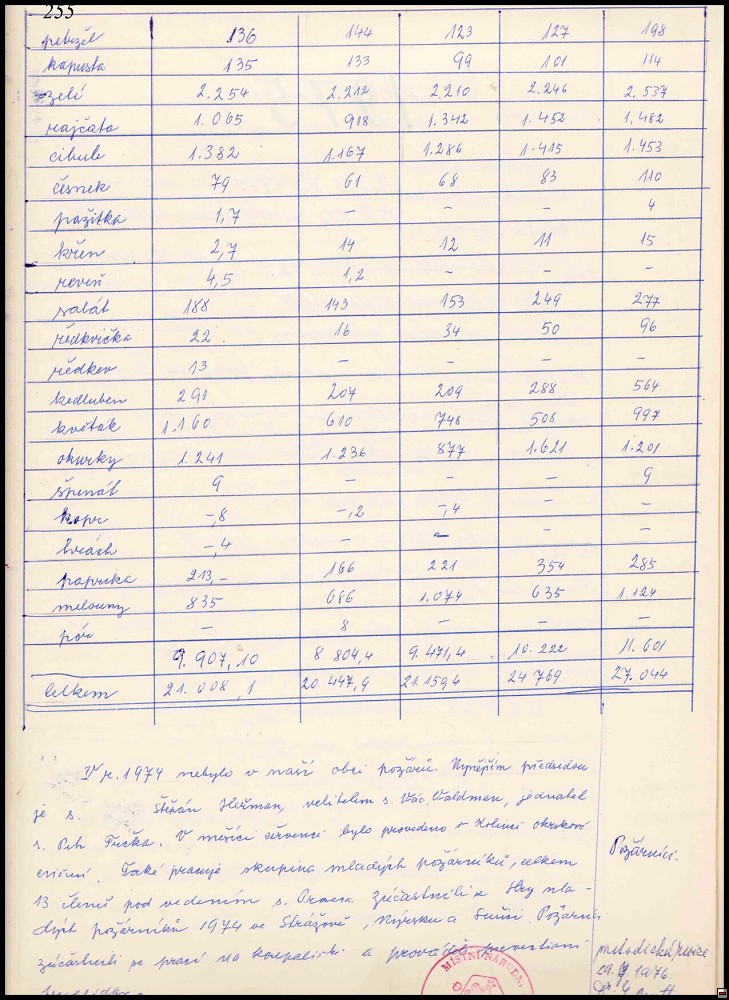 255
petržel 136 144 123 127 198
kapusta 135 133 99 101 114
zelí 2.254 2.212 2.210 2.246 2.537
rajčata 1.065 918 1.342 1.452 1.482
cibule 1.382 1.167 1.286 1.415 1.453
česnek 79 61 68 83 110
pažitka 1,7 – – – 4
křen 2,7 14 12 11 15
reveň 4,5 1,2 – – –
salát 188 143 153 249 277
ředkvička 22 16 34 50 96
ředkev 13 – – – –
kedluben 291 207 209 288 564
květák 1.160 610 746 506 997
okurky 1.241 1.236 877 1.621 1.201
špenát 9 – – – 9
kopr –,8 –,2 –,4 – –
hrách –,4 – – – –
paprika 213,– 166 221 354 285
melouny 835 686 1.074 635 1.124
pór – 8 – – –
9.907,10 8 804,4 9.471,4 10.222 11.601
Celkem 21.008,1 20 447,9 21.159,4 24 769 27.044
V r. 1974 nebylo v naší obci požárů. Nynějším předsedou
je s. Štěpán Heřman, velitelem s. Vác. Waldman, jednatel
s. Petr Fučka. V měsíci červenci bylo provedeno v Kolinci okrskové
cvičení. Také pracuje skupina mladých požárníků, celkem
13 členů pod vedením s. zúčastnili se Hry mla-
dých požárníků 1974 ve Strážově, Nýrsku a Sušici. Požárníci
zúčastnili se prací na koupališti a provádějí preventivní
Požárníci.
metodická revize
1976
MÍSTNÍ NÁROD.